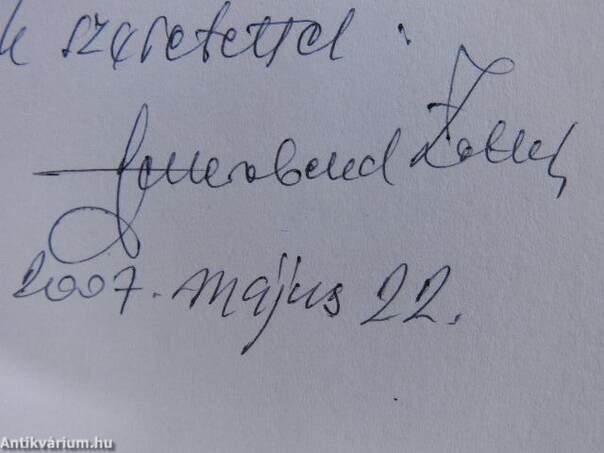 szeretettel :
Feuerabend Zoltán
2007. május 22.
Antikvárium.hu